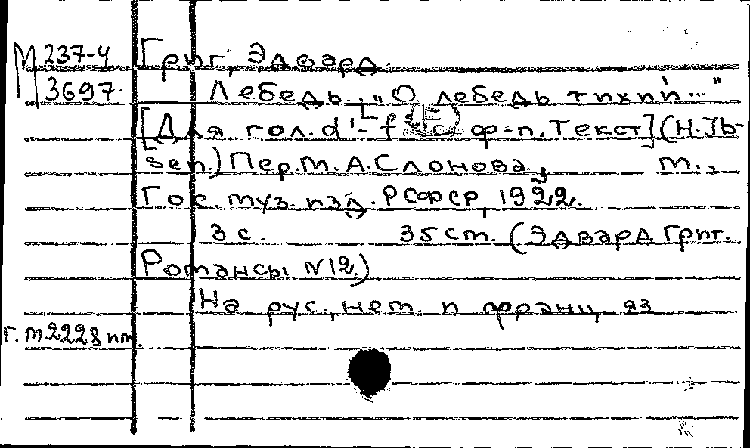 М 237-4
3697.
Григ, Эдвард.
Лебедь. „О лебедь тихий..."
[Для гол. d'- с ф-п. Текст] (H. Ib-
sen.) Пер. М. А. Слонова.
М.,
Гос. муз. изд. РСФСР, 1922.
3 с. 35 cm. (Эдвард Григ.
Романсы N12.)
На рус., нем. и франц. яз
г. м. 2228 нт.